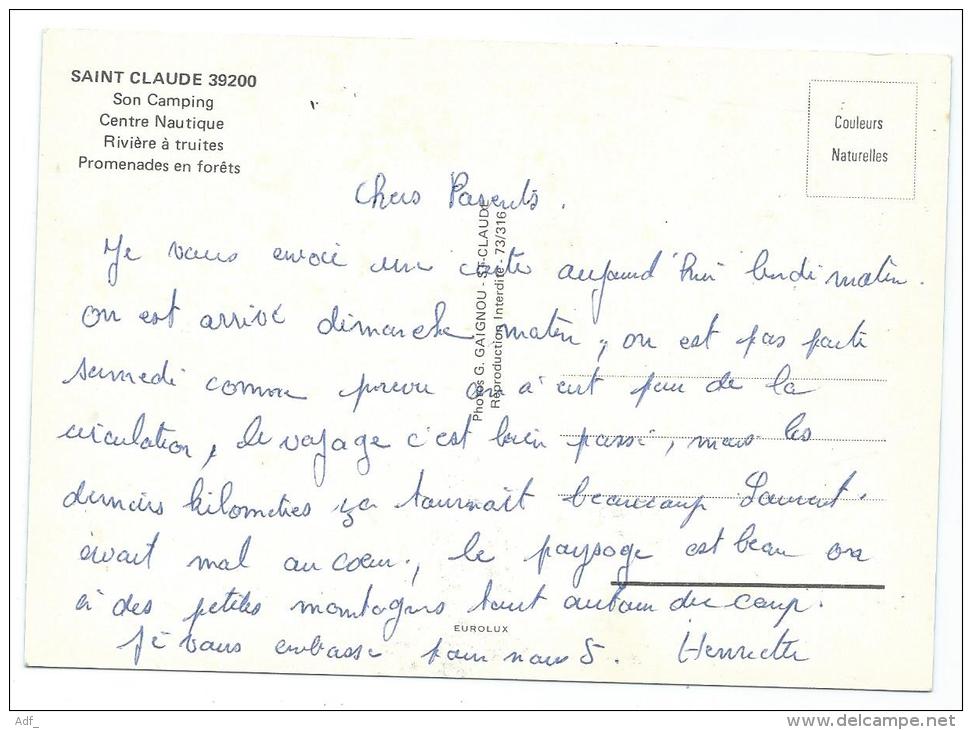 SAINT CLAUDE 39200
Son Camping
Centre Nautique
Rivière à truites
Promenades en forêts
Couleurs
Naturelles
Chers Parents.
Je vous envoie une carte aujourd'hui lundi matin.
On est arrivé dimanche matin, on est pas parti
samedi comme prevu on à eut peur de la
circulation, le voyage c'est bien passé, mais les
derniers kilometres ça tournait beaucoup Laurent
avait mal au coeur, le paysage est beau on
à des petites montagnes tout autour du camp.
Je vous embrasse pour nous 5. Henriette
Photos G. GAIGNOU - ST-CLAUDE
Reproduction Interdite - 73/316
EUROLUX
Adf_
delcampe.net